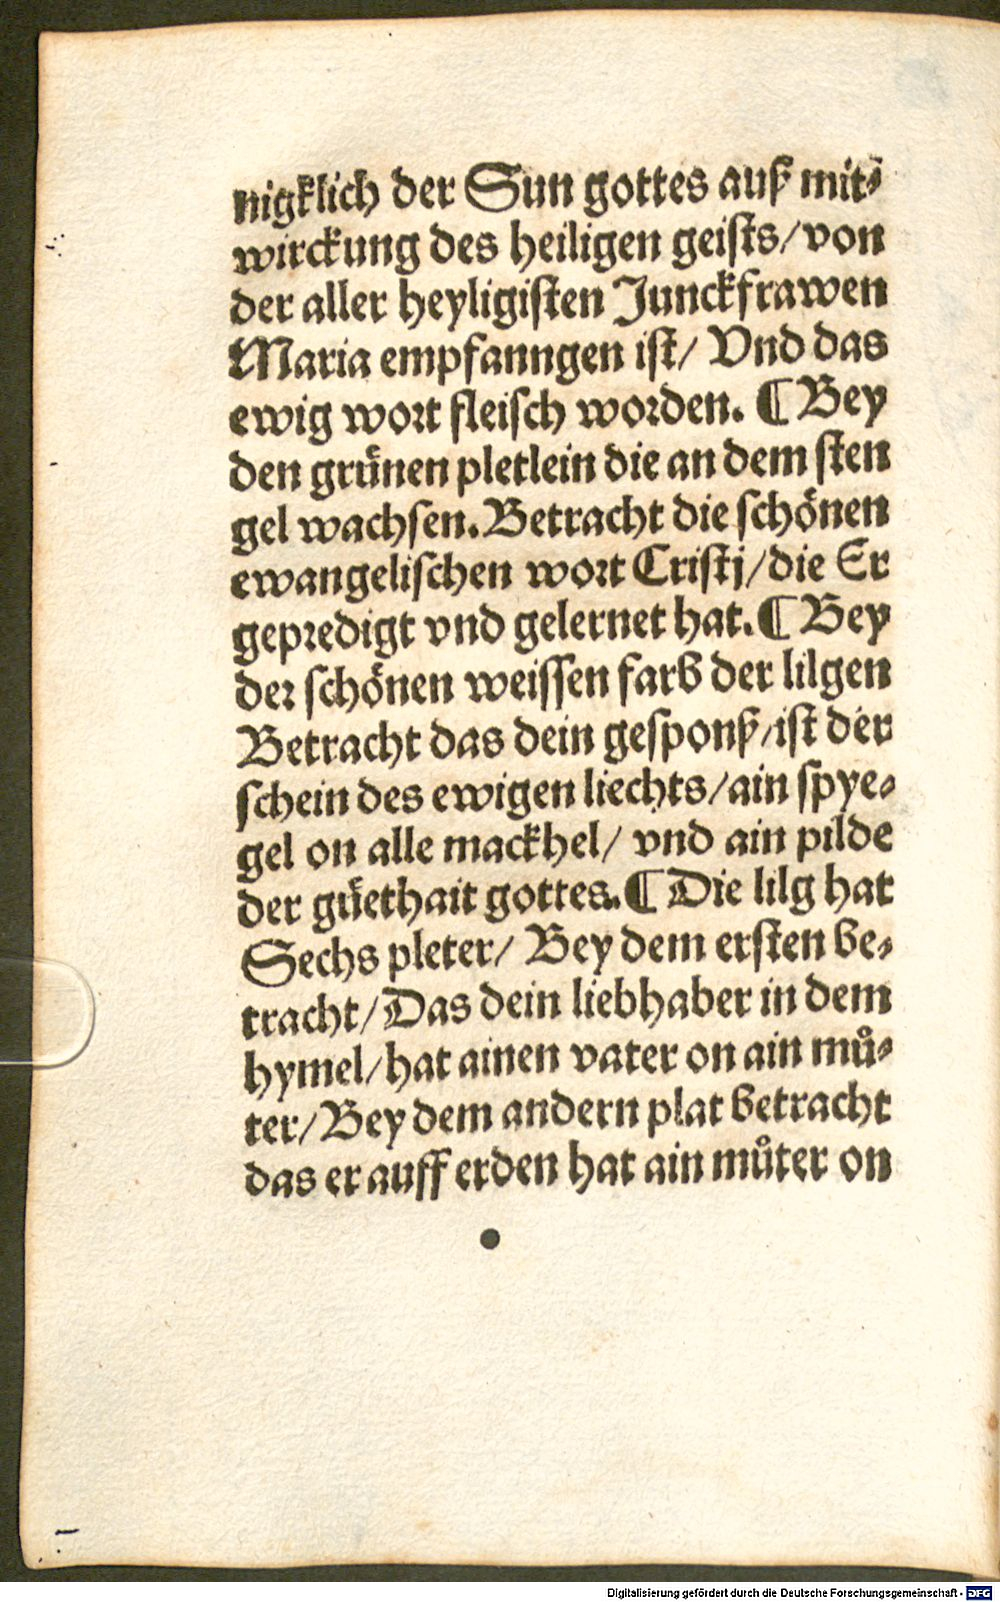 nigklich der Sun gottes auß mit⸗
wirckung des heiligen geists/von
der aller heyligisten Junckfrawen
Maria empfanngen ist/ Vnd das
ewig wort fleisch worden. ¶ Bey
den grünen pletlein die an dem sten
gel wachsen. Betracht die schönen
ewangelischen wort Cristj/die Er
geprediget vnd gelernet hat. ¶ Bey
der schönen weissen farb der lilgen
Betracht das dein gesponß/ist der
schein des ewigen liechts/ain spye⸗
gel on alle mackhel/ vnd ain pilde
der güethait gottes. ¶ Die lilg hat
Sechs pleter/ Bey dem ersten be⸗
tracht/Das dein liebhaber in dem
hymel/hat ainen vater on ain mů⸗
ter/Bey dem andern plat betracht
das er auff erden hat ain můter on
Digitalisierung gefördert durch die Deutsche Forschungsgemeinschaft - DFG